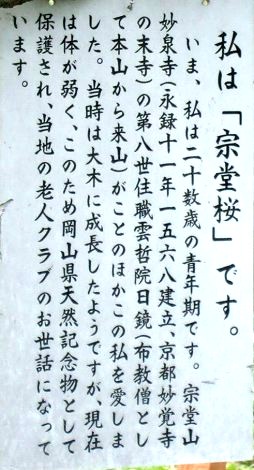 私は「宗堂桜」です。
いま、私は二十数歳の青年期です。宗堂山
妙泉寺(永録十一年一五六八建立、京都妙覚寺
の末寺)の第八世住職雲哲院日鏡(布教僧とし
て本山から来山)がことのほかこの私を愛しま
した。当時は大木に成長したようですが、現在
は体が弱く、このため岡山県天然記念物として
保護され、当地の老人クラブのお世話になって
います。